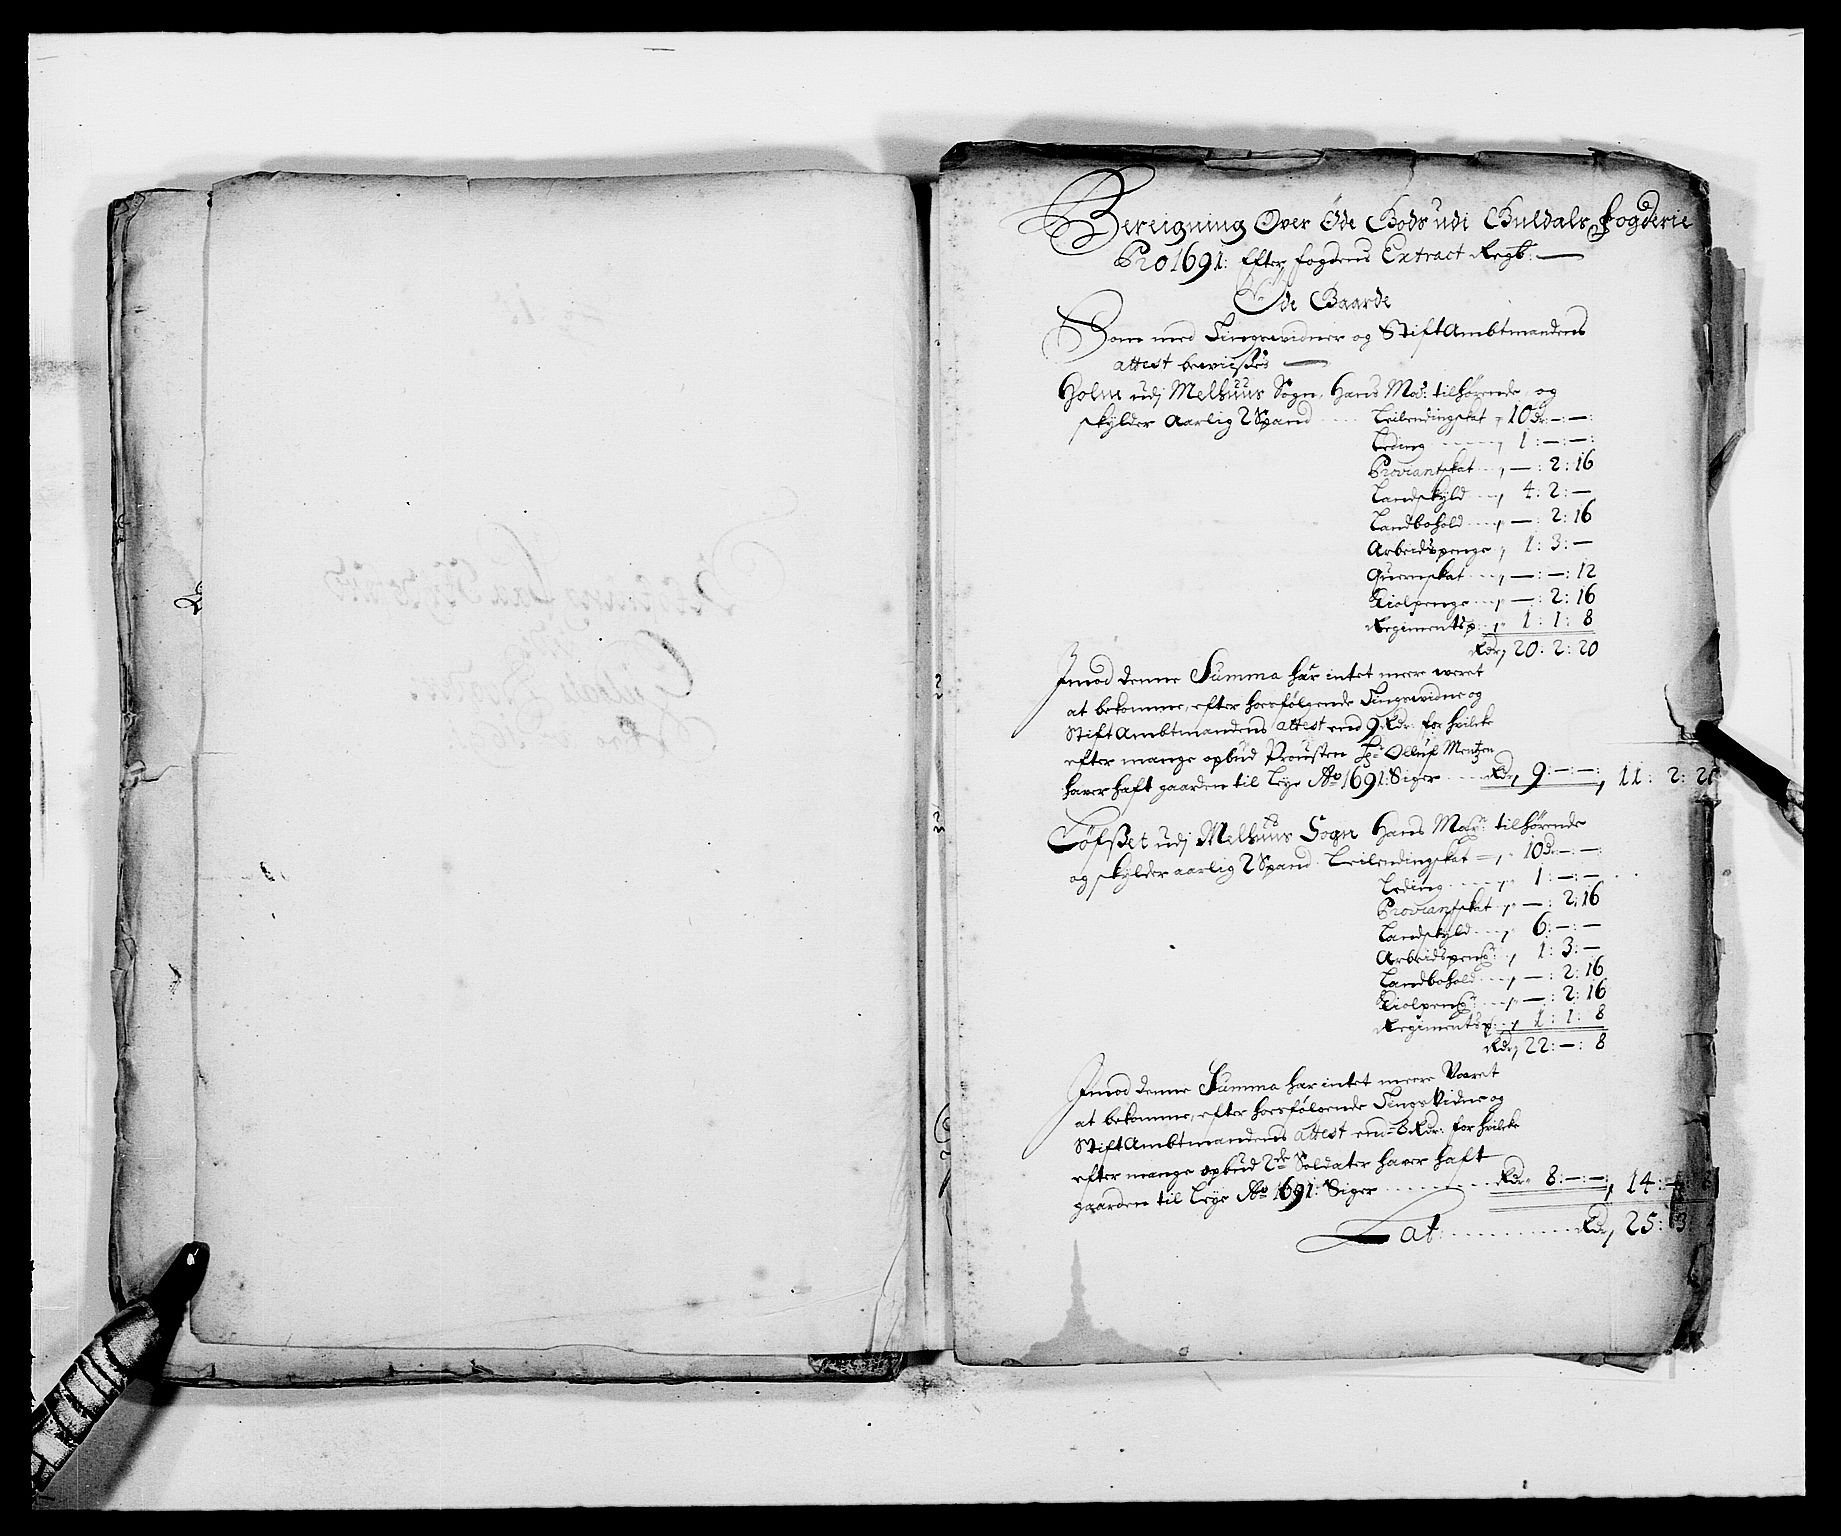 Bereigning Over Øde Gods udi Guldals fogderie
Pro 1691: Efter fogdens Extract Regb:
Øde Gaarde
Som med Tingsvidner og StiftAmbtmandens
attest beviises
Holm udj Melhuus Sogn, Hans May: tilhørende og
skylder Aarlig 2 Spand
Leilendingskat 10 dr:—:—:
Leding 1:—:—:
Proviantskat —: 2: 16
Landskyld 4: 2:—
Landbohold —: 2: 16
Arbeidspenge 1: 3:—
Quernskat —:—: 12
Kiolpenge —: 2: 16
Regimentsp: 1: 1: 8
Rdr 20: 2: 20
Jmod denne Summa har intet meere weret
at bekomme, efter hoesfølgende Tingsvidne og
StiftAmbtmandens attest end 9 Rdr: for hvilcke
efter mange opbud Prousten Hr: Olluf Mentzen
haver haft gaarden til Leye Ao 1691: Siger Rdr 9:—:—: 11: 2: 20
Løfsset udj Melhuus Sogn Hans May: tilhørende
og skylder aarlig 2 Spand Leilendingskat 10 dr:—:—:
Leding 1:—:—
Proviantskat —: 2: 16
Landskyld 6:—:—
Arbeidspeng: 1: 3:—
Landbohold —: 2: 16
Kiolpeng: —: 2: 16
Regimentsp: 1: 1: 8
Rdr 22:—: 8
Jmod denne Summa har intet meere Varet
at bekomme, efter hoesfølgende TingsVidne og
StiftAmbtmandens attest end 8 Rdr: for hvilcke
efter mange opbud 2de Soldater haver haft
gaarden til Leye Ao 1691: Siger Rdr 8:—:—: 14:—
Lat Rdr 25: 3